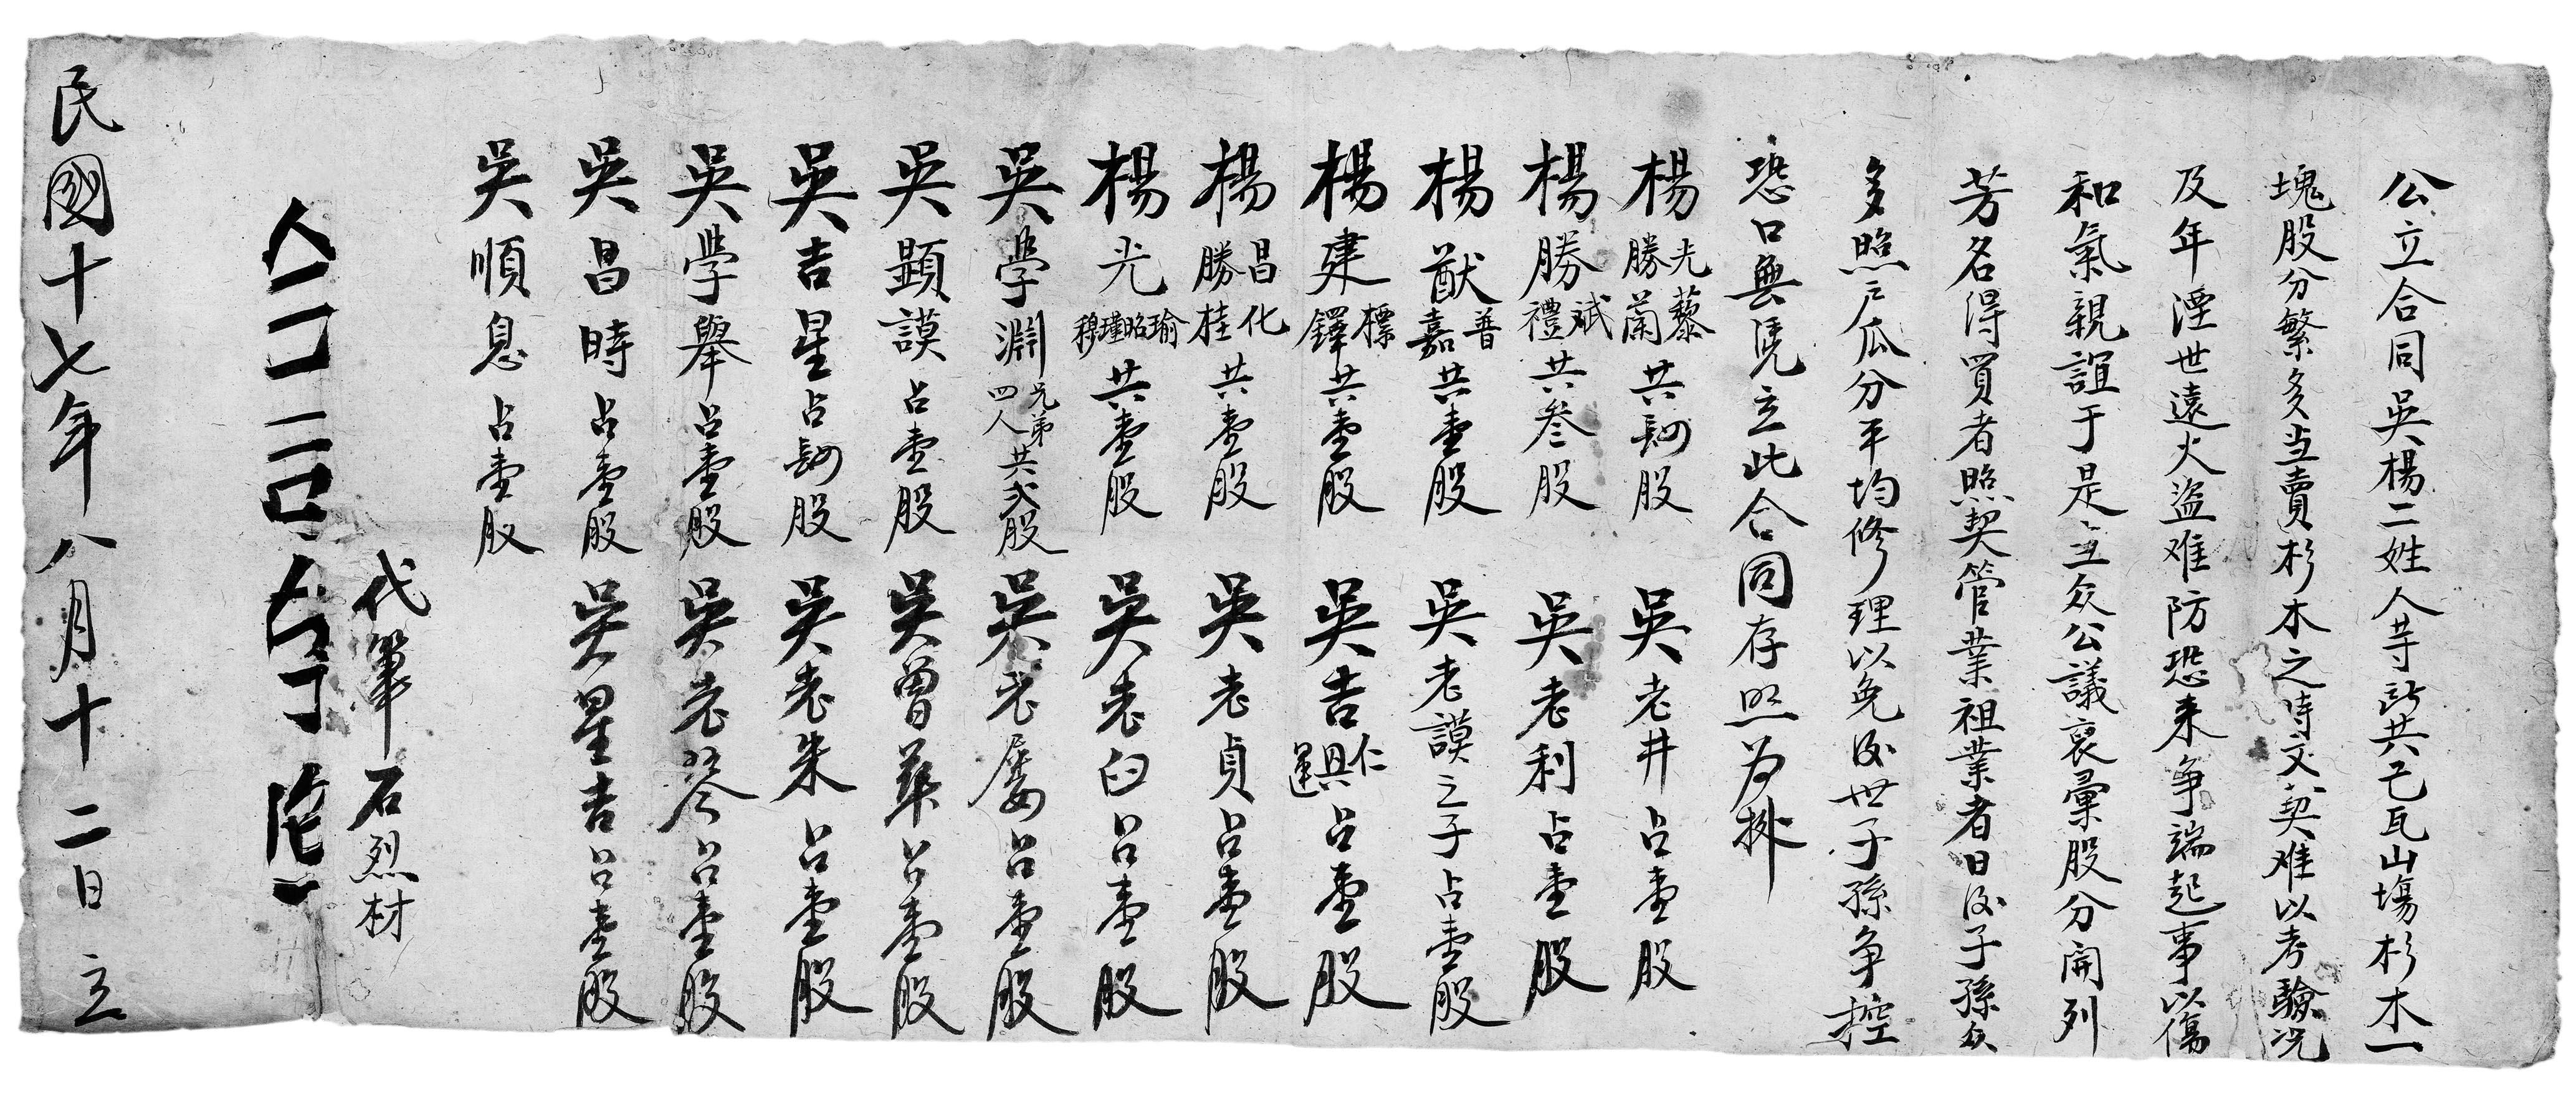 公立合同吳楊二姓人等所共已瓦山塲杉木一
塊股分繁多当賣杉木之時文契难以考驗况
及年湮世遠火盗难防恐来争端起事以傷
和氣親誼于是立众公議裒彙股分開列
芳名得買者照契管業祖業者日後子孫众
多照戶瓜分平均修理以免後世子孫争控
恐口無憑立此合同存照为挀
楊光藜勝蘭共肆股 吳老井占壹股
楊勝斌禮共叁股 吳老利占壹股
楊猷普嘉共壹股 吳老謨之子占壹股
楊建標鐸共壹股 吳吉仁興運占壹股
楊昌化勝桂共壹股 吳老貞占壹股
楊光瑜昭瑾穆共壹股 吳老臼占壹股
吳學淵兄弟四人共弍股 吳老慶占壹股
吳顯謨占壹股 吳曾華占壹股
吳吉星占肆股 吳老朱占壹股
吳學舉占壹股 吳老琴占壹股
吳昌時占壹股 吳星吉占壹股
吳順息占壹股
代筆石烈材
民國十七年八月十二日立